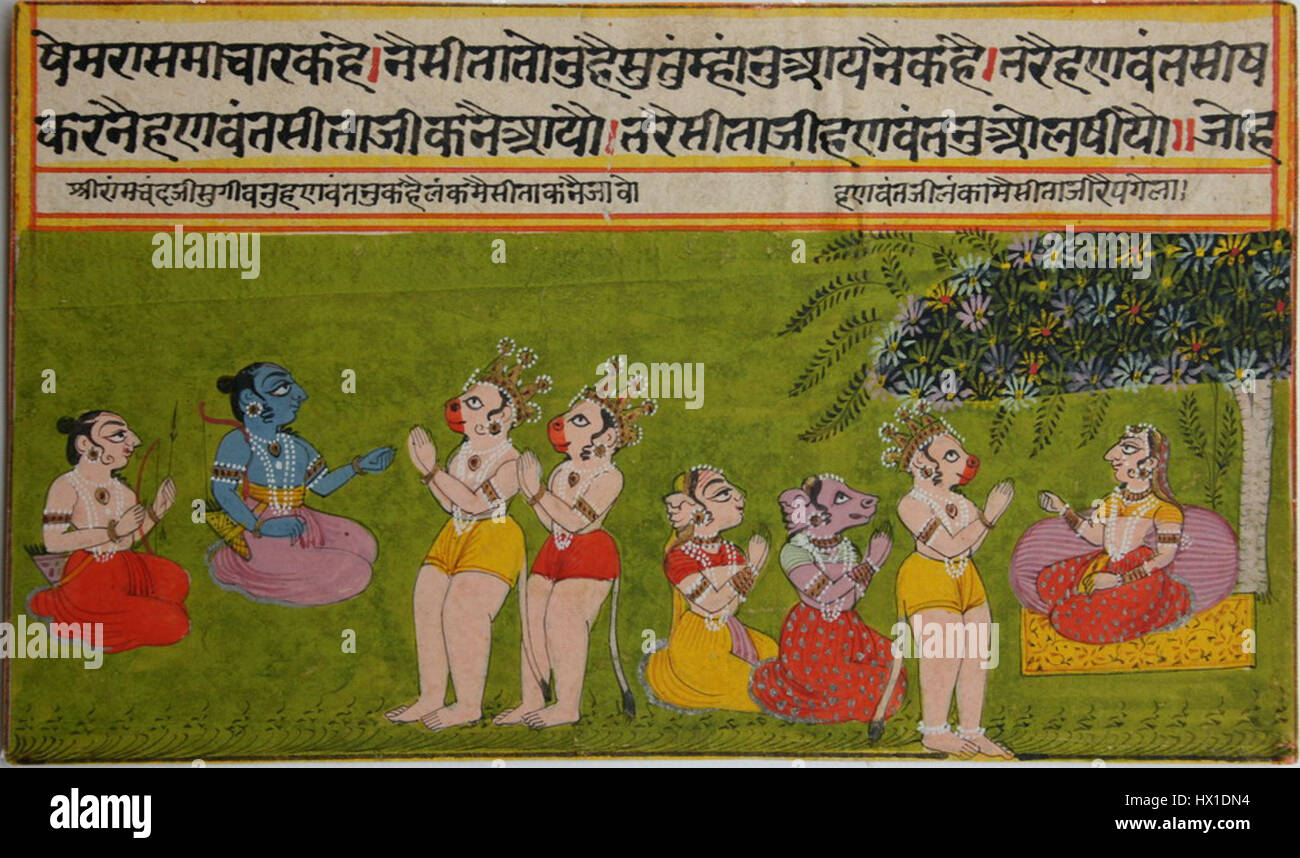 षेमरासमाचारकहै।नैसीतातोनुहैसुतुंम्हांनुआयनैकहै।तरैहणवंतसीष
करनैहणवंतसीताजीकनैआयौ।तरैसीताजीहणवंतनुओलषीयौ॥जोह
श्रीरांमचंदजीसुगीवनुहणवंतनुकहैलंकमैसीताकनैजावो
हणवंतजीलंकामैसीताजीरैपगेला।
alamy stock photo
HX1DN4
www.alamy.com